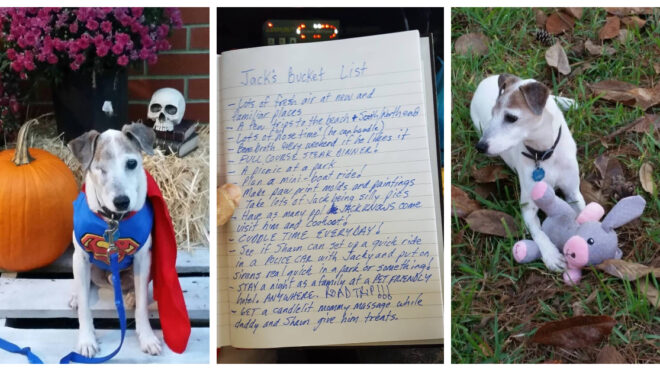 Jack's Bucket List
- Lots of fresh air at new and
familiar places
- A few trips to the beach +
- Lots of nose time! (he can handle)
- Bone Broth every weekend if he likes it
- FULL COURSE STEAK DINNER!
- A picnic at a park
- Plan a mini-boat ride!
- Make paw print molds and paintings
- Take lots of Jack being silly pics
- Have as many ppl JACK KNOWS come
visit him and
- CUDDLE TIME EVERYDAY!
- See if Shaun can set up a quick ride
in a POLICE CAR with Jacky and put on
sirens real quick in a park or something!
- STAY a night as a family at a PET FRIENDLY
hotel. ANYWHERE. ROAD TRIP!!!
- GET a candlelit mommy massage while
daddy and Shaun give him treats.